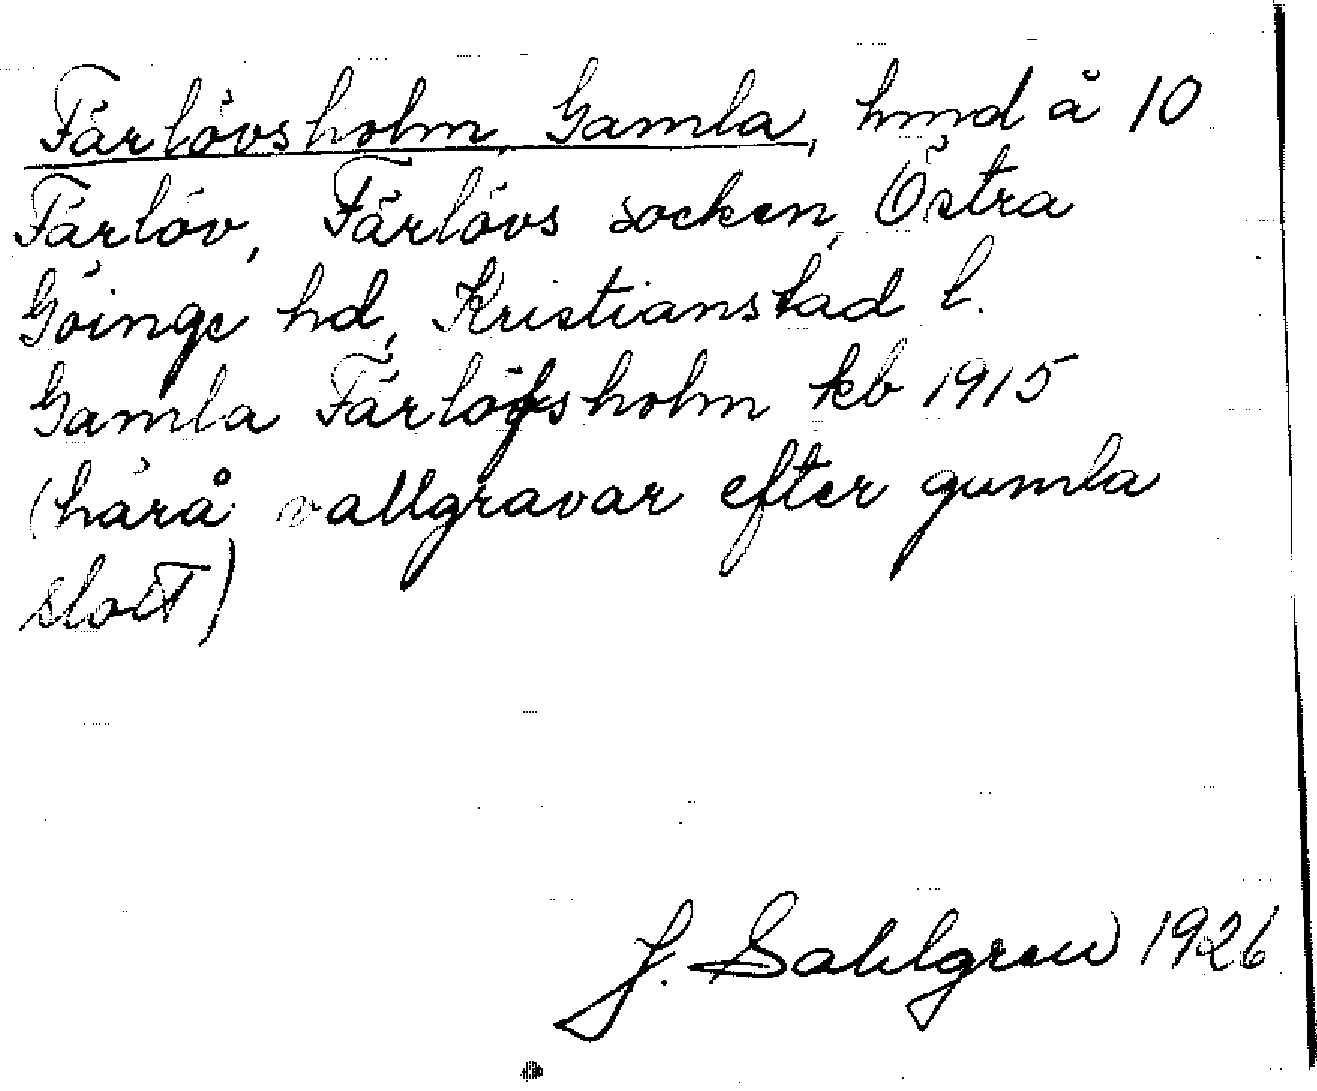 Färlövsholm, Gamla, hmd å 10
Färlöv, Färlövs socken, Östra
Göinge hd, Kristianstad l.
Gamla Färlöfsholm kb 1915
(härå vallgravar efter gumla
slott)
J. Sahlgren 1926